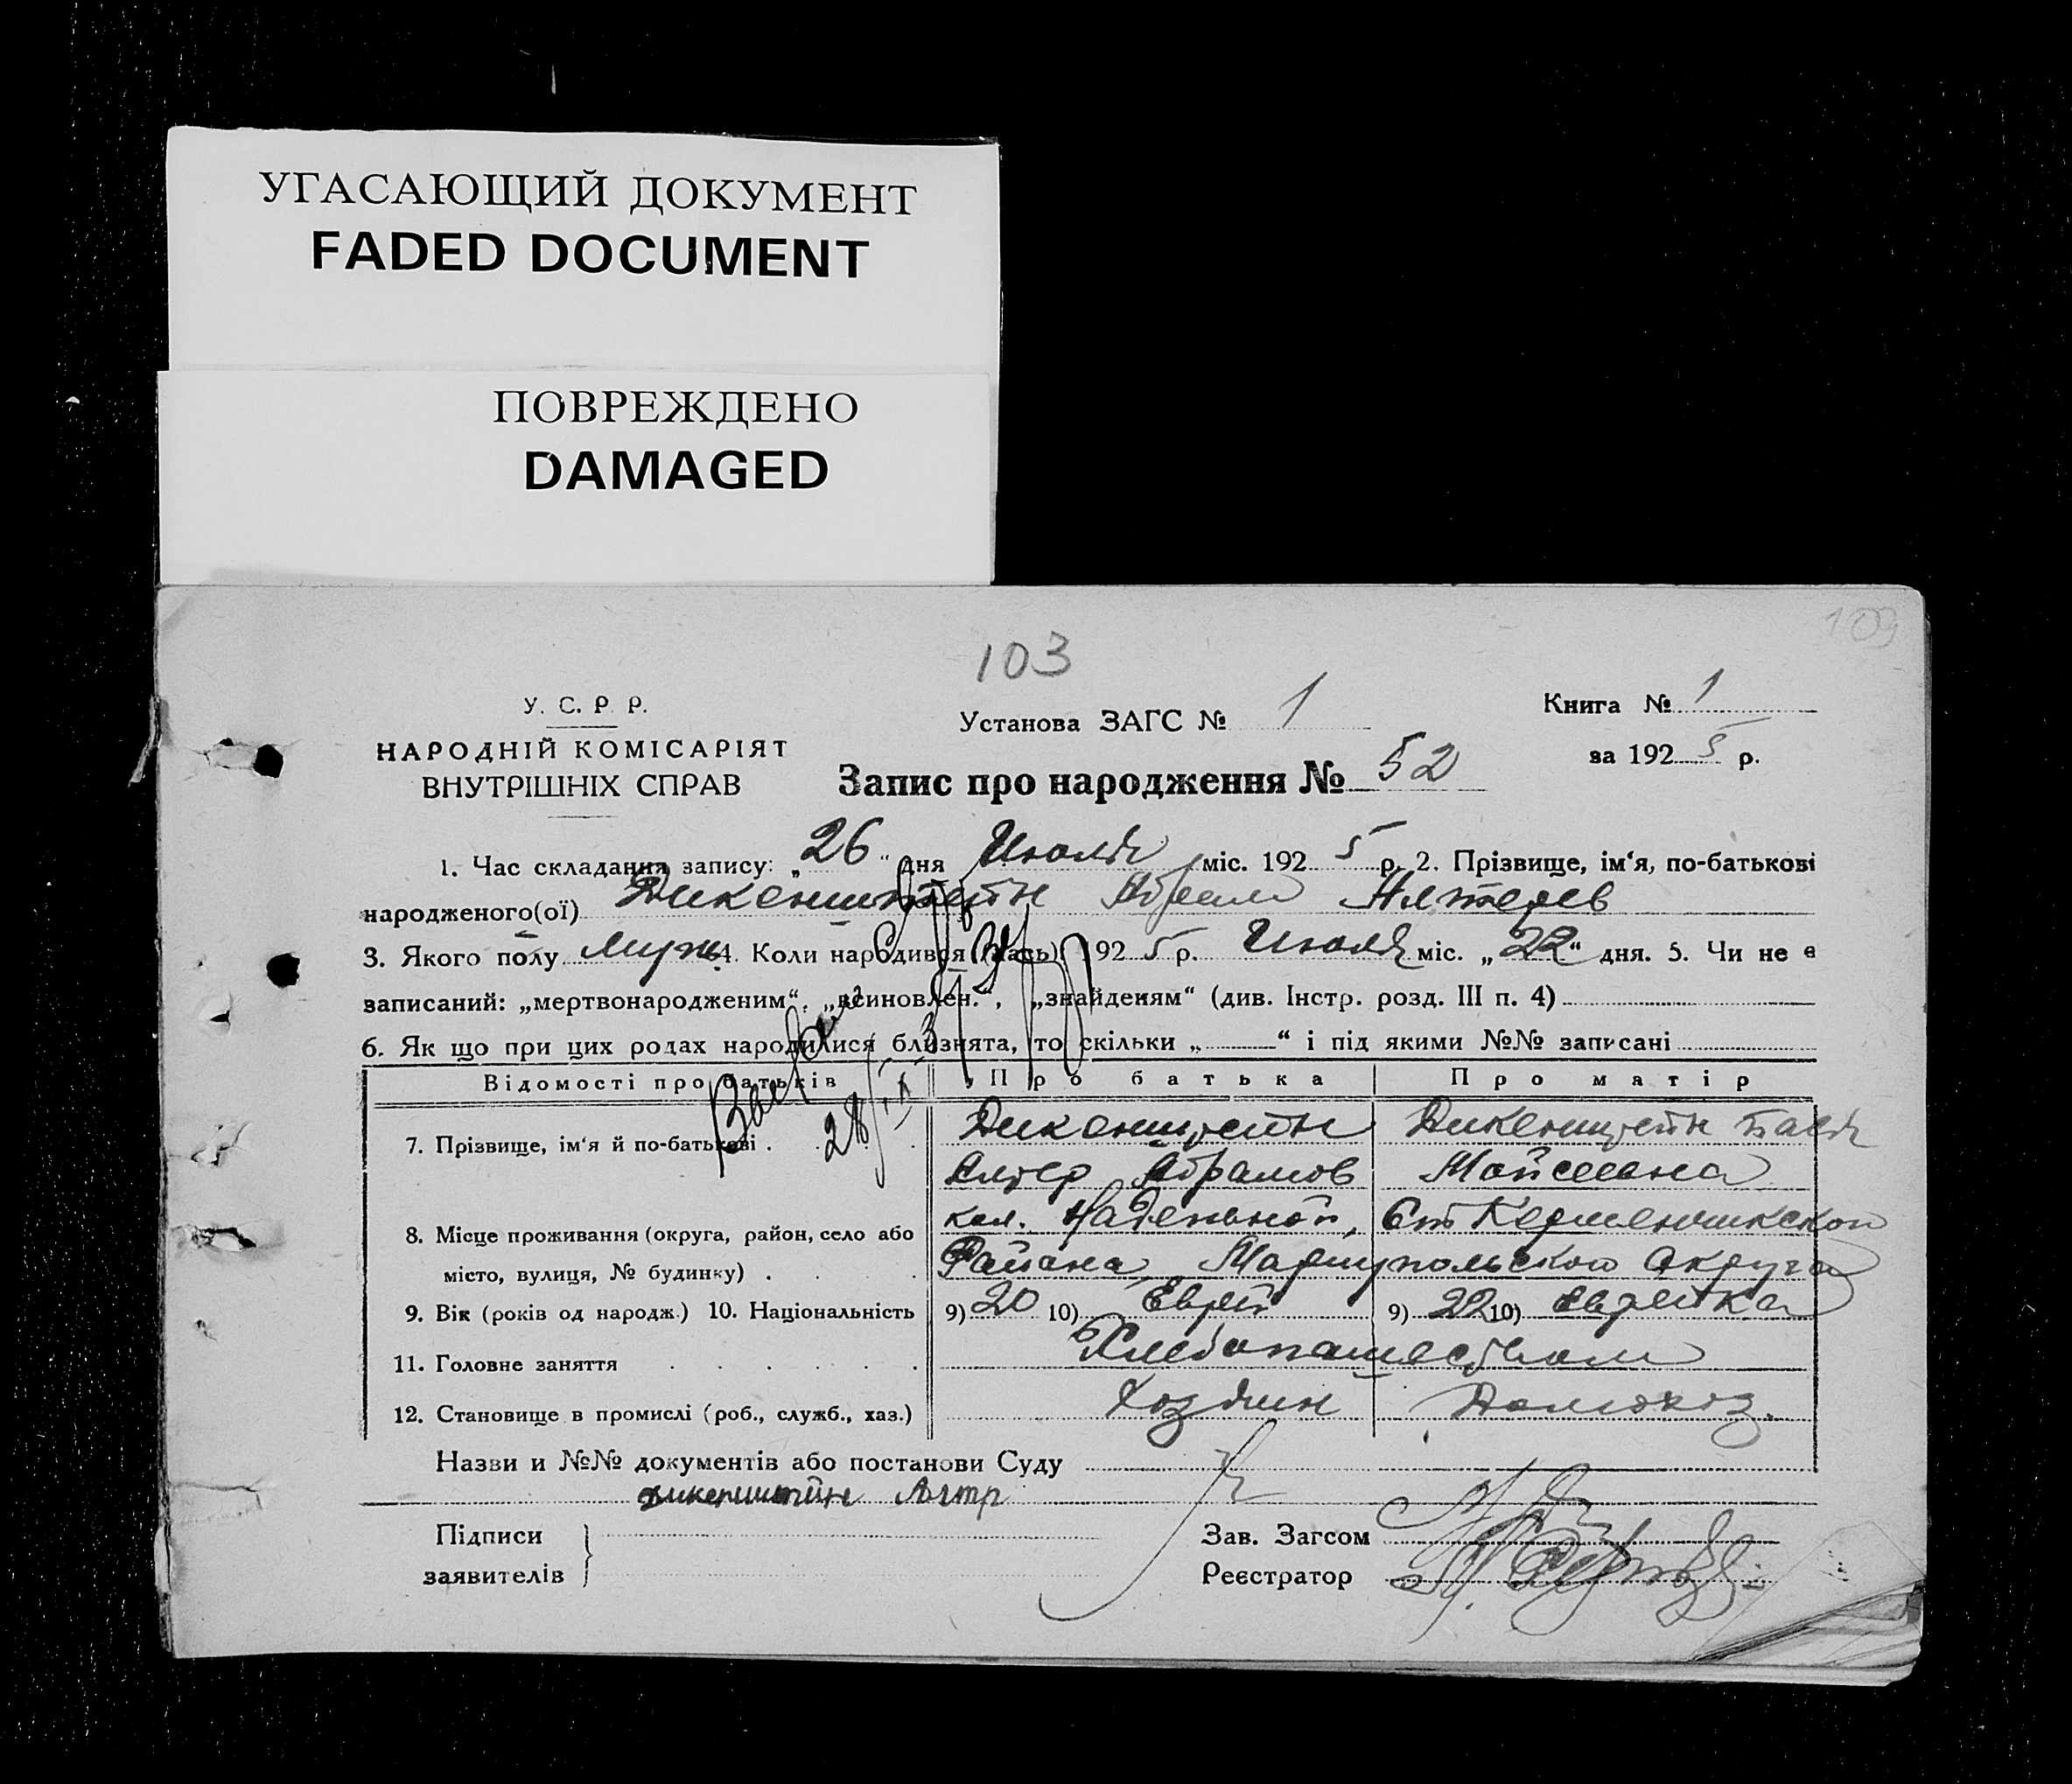 УГАСАЮЩИЙ ДОКУМЕНТ
FADED DOCUMENT
ПОВРЕЖДЕНО
DAMAGED
109
103
У. С. Р. Р.
НАРОДНІЙ КОМІСАРІЯТ
ВНУТРІШНІХ СПРАВ
Установа ЗАГС № 1
Книга № 1
за 1925 р.
Запис про народження № 52
1. Час складання запису: „26“ дня Июля міс. 1925 р. 2. Прізвище, ім‘я, по-батькові
народженого(ої) Дикенштейн Абрам Алтеров
3. Якого полу Муж. 4. Коли народився (лась) 1925 р. Июля міс. „22“ дня. 5. Чи не є
записаний: „мертвонародженим“, „всиновлен.“, „знайденям“ (див. Інстр. розд. III п. 4)
6. Як що при цих родах народилися близнята, то скільки „ “ і під якими №№ записані
Відомості про батьків Про батька Про матір
7. Прізвище, ім‘я й по-батькові . Дикенштейн Дикенштейн
Алтер Абрамов Мойсеевна
8. Місце проживання (округа, район, село або кол. Надежной,
місто, вулиця, № будинку) . Района, Мариупольской Округа
9. Вік (років од народж.) 10. Національність 9) 20 10) Еврей 9) 22 10) Еврейка
11. Головне заняття Хлебопашеством
12. Становище в промислі (роб., служб., хаз.) Хозяин Домохоз.
28/IX
Назви и №№ документів або постанови Суду
дикенштейн Алтр
Підписи
заявителів
Зав. Загсом
Реєстратор